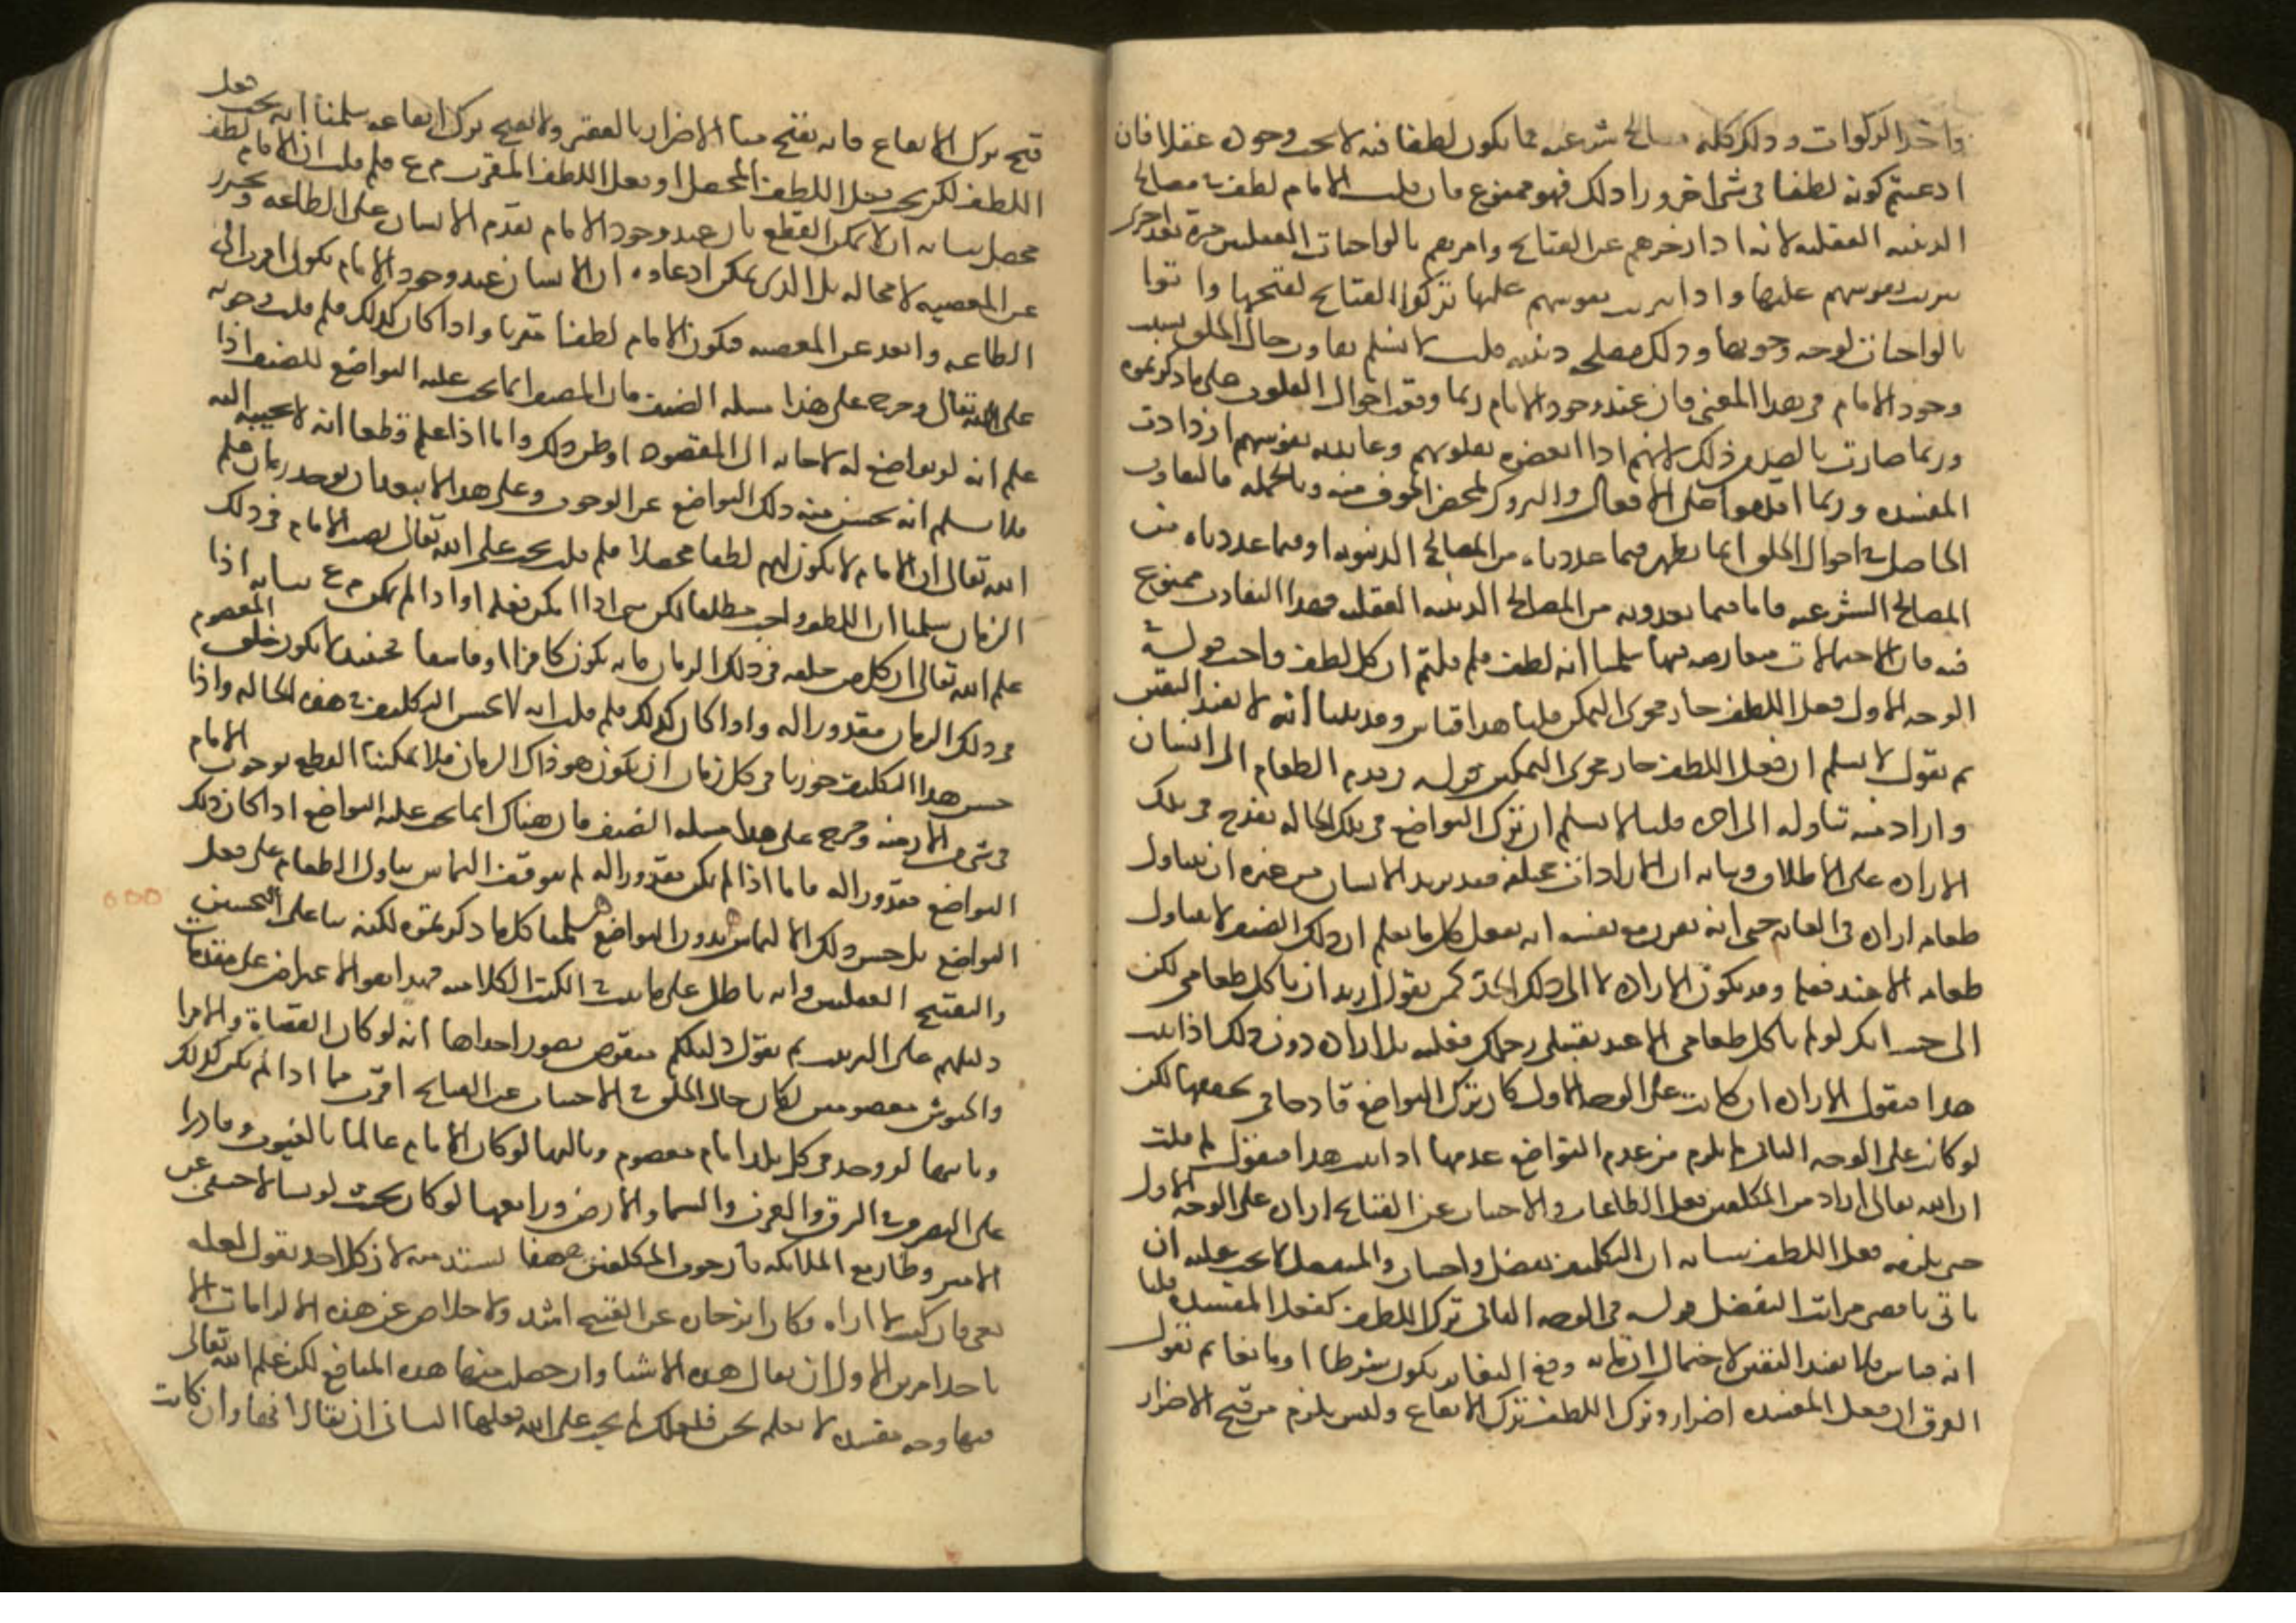 واخذ الزكوات وذلك كله مصالح شرعيه فما يكون لطفا فيه لا يجب وجوده عقلا فان
ادعيتم كونه لطفا في شي اخر ورا ذلك فهو ممنوع فان قلت الامام لطف في مصالح
الدينيه العقليه لانه اذا زجرهم عن القبائح وامرهم بالواجبات العقليه مرة بعد اخرى
تمرنت نفوسهم عليها واذا تمرنت نفوسهم عليها تركوا القبائح لقبحها واتوا
بالواجبات لوجه وجوبها وذلك مصلحه دينيه قلت لا نسلم تفاوت حال الخلق بسبب
وجود الامام في هذا المعنى فان عند وجود الامام ربما وقعت احوال القلوب على ما ذكرتموه
وربما صارت بالضد من ذلك لانهم اذا ابغضوه بقلوبهم وعاندته نفوسهم ازدادت
المفسده وربما اقدموا على الافعال والتروك لمحض الخوف منه وبالجمله فالتفاوت
الحاصل في احوال الخلق انما يظهر فيما عددناه من المصالح الدنيويه او فيما عددناه من
المصالح الشرعيه فاما فيما تعدونه من المصالح الدينيه العقليه فهذا التفاوت ممنوع
فيه فان الاحتمالات متعارضه فيها سلمنا انه لطف فلم قلتم ان كل لطف واجب قوله في
الوجه الاول فعل اللطف جار مجرى التمكين قلنا هذا قياس وقد بينا انه لا يفيد اليقين
ثم نقول لا نسلم ان فعل اللطف جار مجرى التمكين قوله من قدم الطعام الى انسان
واراد منه تناوله الى اخره قلنا لا نسلم ان ترك التواضع في تلك الحاله يقدح في تلك
الاراده على الاطلاق وبيانه ان الارادات مختلفه فقد يريد الانسان من غيره ان يتناول
طعامه اراده في الغايه حتى انه يقرر مع نفسه انه يفعل كل ما يعلم ان ذلك الضيف لا يتناول
طعامه الا عند فعله وقد تكون الاراده لا الى ذلك الحد كمن يقول اريد ان تاكل طعامي لكن
الى حيث انك لو لم تاكل طعامي الا عند تقبيلي رجلك فعلته بل اراده دون ذلك اذا ثبت
هذا فنقول الاراده ان كانت على الوجه الاول كان ترك التواضع قادحا في تحققها لكن
لو كانت على الوجه الثاني لم يلزم من عدم التواضع عدمها اذا ثبت هذا فنقول لم قلت
ان الله تعالى اراد من المكلفين فعل الطاعات والاجتناب عن القبائح اراده على الوجه الاول
حتى يلزمه فعل اللطف بيانه ان التكليف تفضل واحسان والمتفضل لا يجب عليه ان
ياتي باقصى مراتب التفضل قوله في الوجه الثاني ترك اللطف كفعل المفسده قلنا
انه قياس فلا يفيد اليقين لاحتمال ان ما به وقع التغاير يكون شرطا او مانعا ثم نقول
الفرق ان فعل المفسده اضرار وترك اللطف ترك الانفاع وليس يلزم من قبح الاضرار
قبح ترك الانفاع فانه يقبح منا الاضرار بالفقير ولا يقبح ترك انفاعه سلمنا انه يجب فعل
اللطف لكن يجب فعل اللطف المحصل او فعل اللطف المقرب م ع فلم قلت ان الامام لطف
محصل بيانه انه لا يمكن القطع بان عند وجود الامام يقدم الانسان على الطاعه ويحترز
عن المعصيه لا محاله بل الذي يمكن ادعاوه ان الانسان عند وجود الامام يكون اقرب الى
الطاعه وابعد عن المعصيه فيكون الامام لطفا مقربا واذا كان كذلك فلم قلت بوجوبه
على الله تعالى وخرج على هذا مسله الضيف فان المضيف انما يجب عليه التواضع للضيف اذا
علم انه لو تواضع له لاجابه الى المقصود او ظن ذلك واما اذا علم قطعا انه لا يجيبه اليه
فلا نسلم انه يحسن منه ذلك التواضع عن الوجوب وعلى هذا لا يبعد ان يوجد زمان علم
الله تعالى ان الامام لا يكون لهم لطفا محصلا فلم قلت يجب على الله تعالى نصب الامام في ذلك
الزمان سلمنا ان اللطف واجب مطلقا لكن متى اذا امكن فعله او اذا لم يمكن م ع بيانه اذا
علم الله تعالى ان كل من خلقه في ذلك الزمان فانه يكون كافرا او فاسقا فحينئذ لا يكون خلق المعصوم
في ذلك الزمان مقدورا له واذا كان كذلك فلم قلت انه لا يحسن التكليف في هذه الحاله واذا
حسن هذا التكليف جوزنا في كل زمان ان يكون هو ذاك الزمان فلا يمكننا القطع بوجوب الامام
في شي من الازمنه وخرج على هذا مسله الضيف فان هناك انما يجب عليه التواضع اذا كان ذلك
التواضع مقدورا له فاما اذا لم يكن مقدورا له لم يتوقف التماس تناول الطعام على فعل
التواضع بل حسن ذلك الالتماس بدون التواضع سلمنا كل ما ذكرتموه لكنه بنا على التحسين
والتقبيح العقليين وانه باطل على ما ثبت في الكتب الكلاميه فهذا هو الاعتراض على مقدمات
دليلهم على الترتيب ثم نقول دليلكم منقوض بصور احداها انه لو كان القضاة والامرا
والجيوش معصومين لكان حال الخلق في الاجتناب عن القبائح اقرب مما اذا لم يكن كذلك
وثانيها لو وجد في كل بلد امام معصوم وثالثها لو كان الامام عالما بالغيوب وقادرا
على التصرف في الشرق والغرب والسما والارض ورابعها لو كان بحيث لو شا لاختفى عن
الاعين وطار مع الملائكه لان كل احد يقول لعله
معي وان كنت لا اراه وكان انزجاره عن القبيح اشد ولا خلاص عن هذه الالزامات الا
باحد امرين الاول ان يقال هذه الاشيا وان حصل منها هذه المنافع لكن علم الله تعالى
فيها وجه مفسده لا نعلم نحن فلذلك لم يجب على الله فعلها الثاني ان يقال انها وان كانت